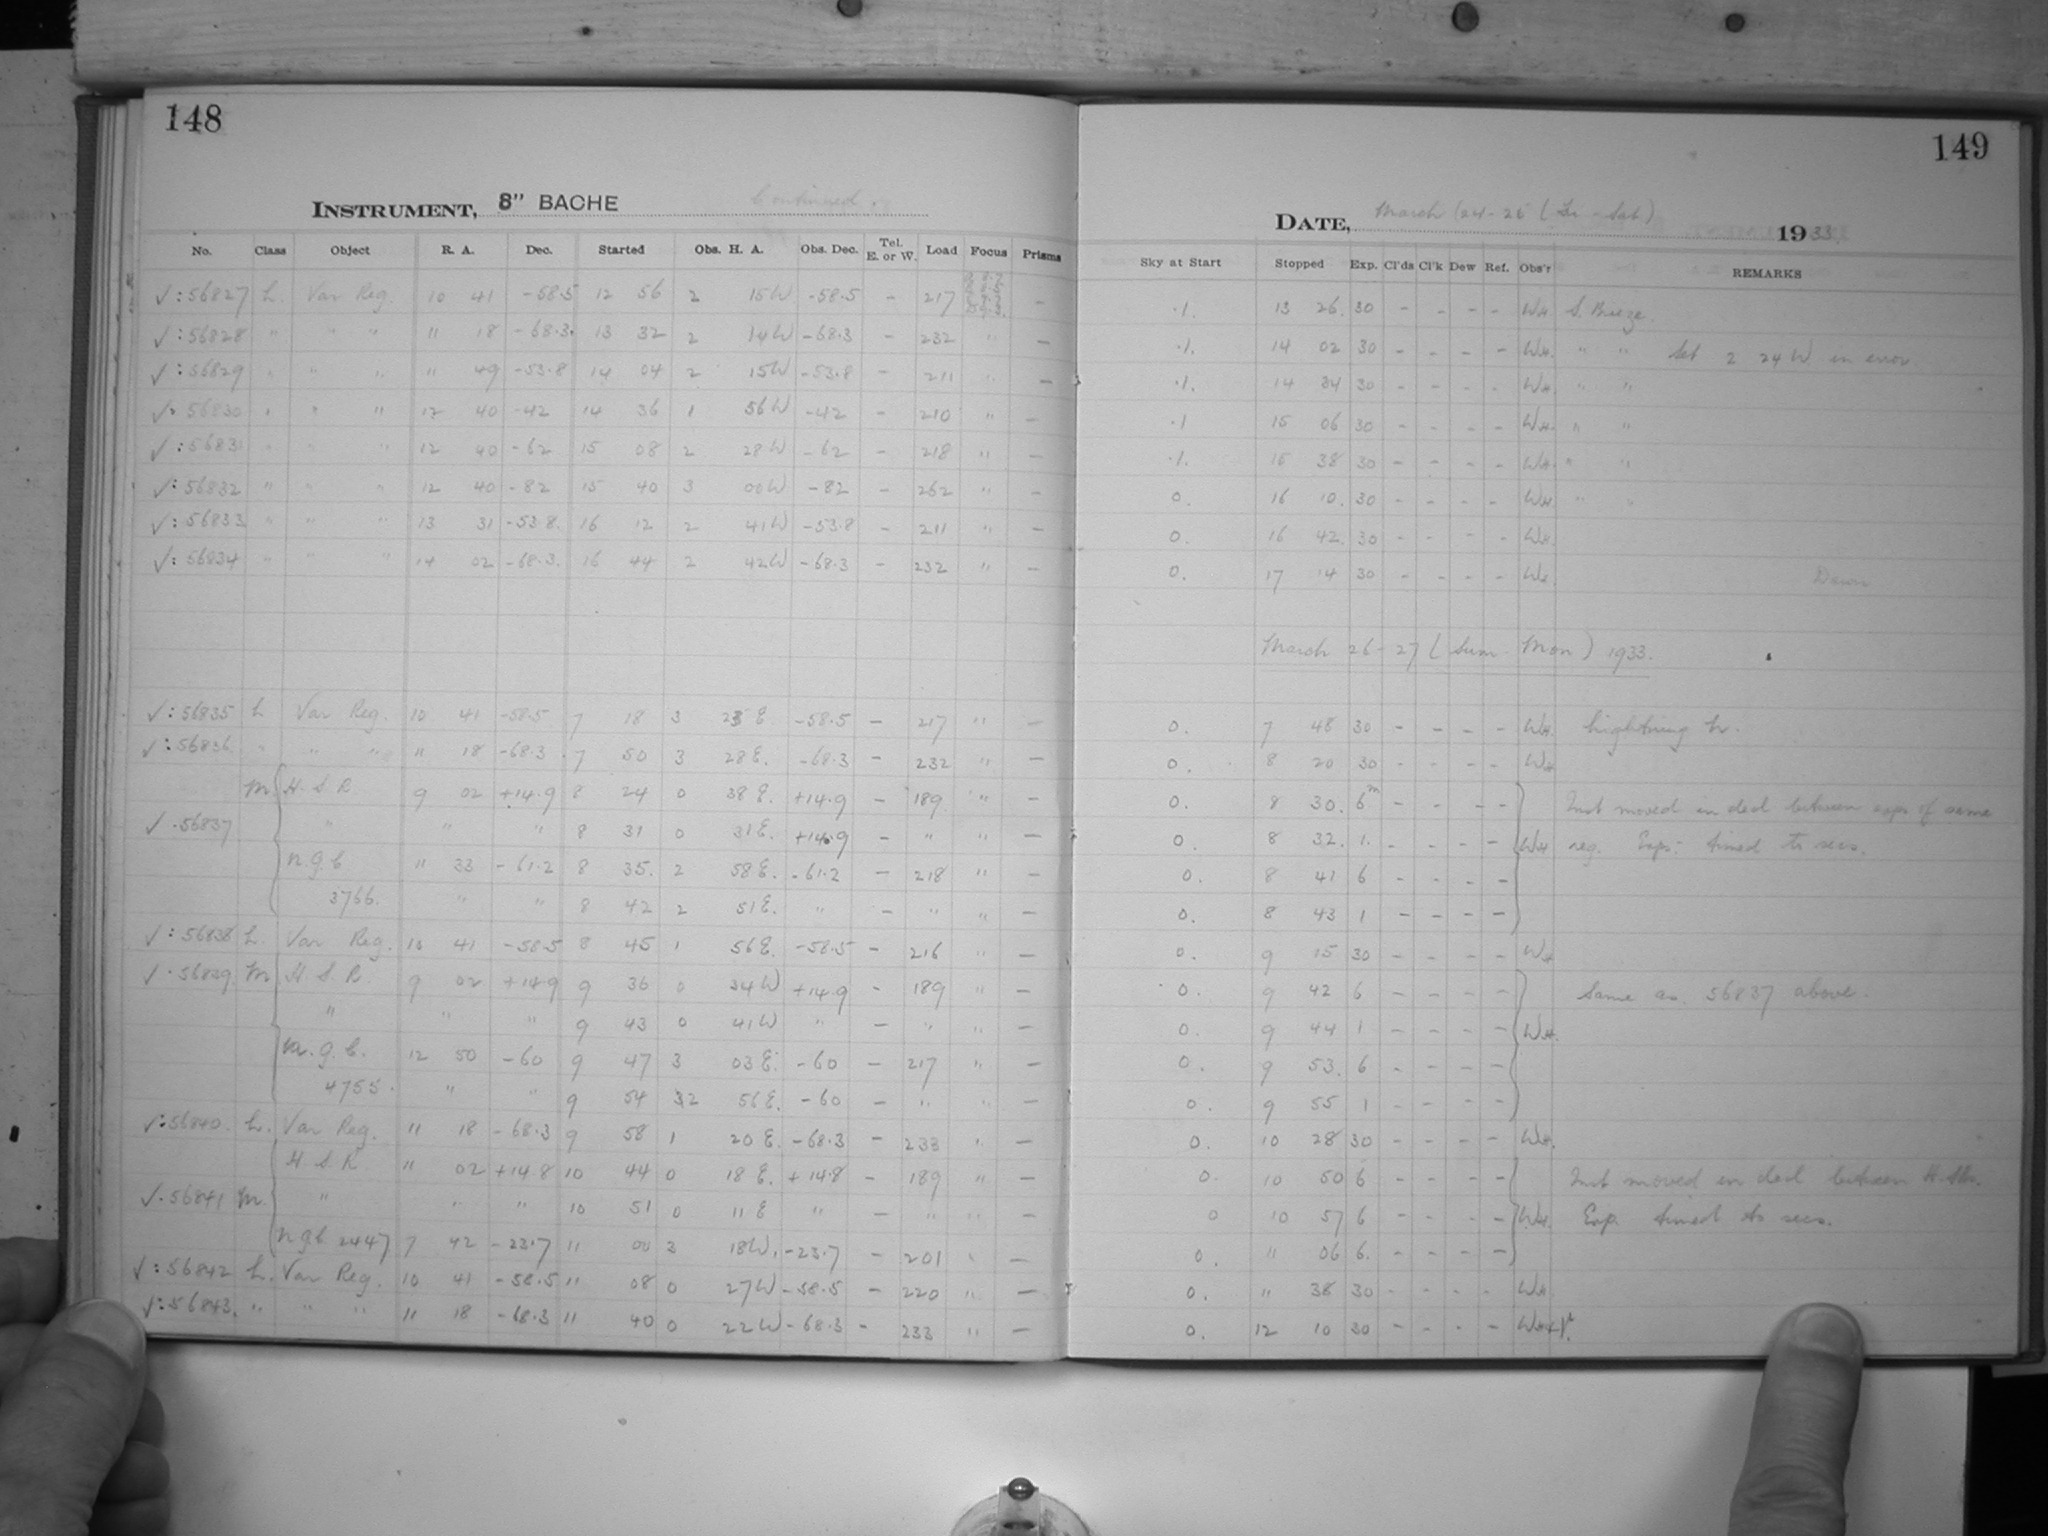 148
INSTRUMENT, 8" BACHE Continued
No. Class Object R. A. Dec. Started Obs. H. A. Obs. Dec. Tel. E. or W. Load Focus Prisms
√:56827 L. Var Reg. 10 41 -58.5 12 56 2 15W -58.5 - 217 -
√:56828 " " " 11 18 -68.3 13 32 2 14W -68.3 - 232 " -
√:56829 " " " 11 49 -53.8 14 04 2 15W -53.8 - 211 " -
√:56830 " " " 12 40 -42 14 36 1 56W -42 - 210 " -
√:56831 " " " 12 40 -62 15 08 2 28W -62 - 218 " -
√:56832 " " " 12 40 -82 15 40 3 00W -82 - 262 " -
√:56833 " " " 13 31 -53.8 16 12 2 41W -53.8 - 211 " -
√:56834 " " " 14 02 -68.3 16 44 2 42W -68.3 - 232 " -
√:56835 L Var Reg. 10 41 -58.5 7 18 3 23E -58.5 - 217 " -
√:56836 " " " 11 18 -68.3 7 50 3 28E. -68.3 - 232 " -
m H.S.R 9 02 +14.9 8 24 0 38E. +14.9 - 189 " -
√.56837 " " " 8 31 0 31E. +14.9 - " " -
n.g.c " 33 -61.2 8 35. 2 58E. -61.2 - 218 " -
3766. " " 8 42 2 51E. " - " " -
√:56838 L. Var Reg. 10 41 -58.5 8 45 1 56E. -58.5 - 216 " -
√.56839 m H.S.R. 9 02 +14.9 9 36 0 34W +14.9 - 189 " -
" " " 9 43 0 41W " - " " -
n.g.c. 12 50 -60 9 47 3 03E. -60 - 217 " -
4755. " " 9 54 2 56E. -60 - " " -
√:56840. L. Var Reg. 11 18 -68.3 9 58 1 20E. -68.3 - 233 " -
H.S.R " 02 +14.8 10 44 0 18E. +14.8 - 189 " -
√.56841 m. " " " 10 51 0 11E " - " " -
n.g.c 2447 7 42 -23.7 11 00 3 18W. -23.7 - 201 " -
√:56842 L. Var Reg. 10 41 -58.5 11 08 0 27W -58.5 - 220 " -
√:56843. " " " 11 18 -68.3 11 40 0 22W -68.3 - 233 " -
149
DATE, March (24-25 (Fri - Sat) 1933.
Sky at Start Stopped Exp. Cl'ds Cl'k Dew Ref. Obs'r REMARKS
.1. 13 26. 30 - - - - WH. S. Breeze.
.1. 14 02 30 - - - - WH. " " Set 2 24W in error.
.1. 14 34 30 - - - - WH. " "
.1 15 06 30 - - - - WH. " "
.1. 15 38 30 - - - - WH. " "
0. 16 10. 30 - - - - WH. " "
0. 16 42. 30 - - - - WH.
0. 17 14 30 - - - - WH. Dawn
March 26-27 (Sun - Mon) 1933.
0. 7 48 30 - - - - WH. Lightning
0. 8 20 30 - - - - WH
0. 8 30. 6m - - - - Inst moved in decl between exps of same
0. 8 32. 1. - - - - WH reg. Exps: timed to secs.
0. 8 41 6 - - - -
0. 8 43 1 - - - -
0. 9 15 30 - - - - WH
0. 9 42 6 - - - - Same as 56837 above.
0. 9 44 1 - - - - WH.
0. 9 53. 6 - - - -
0. 9 55 1 - - - -
0. 10 28 30 - - - - WH.
0. 10 50 6 - - - - Inst moved in decl between H.SRs.
0 10 57 6 - - - - WH. Exp. timed to secs.
0. " 06 6. - - - -
0. " 38 30 - - - - WH
0. 12 10 30 - - - -